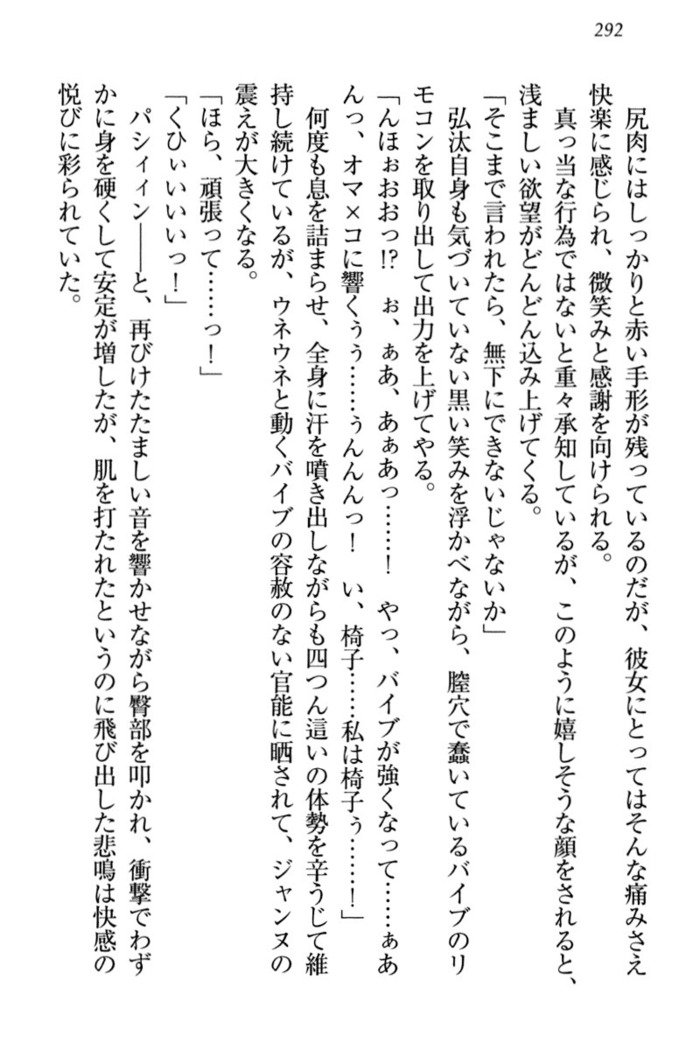 292
尻肉にはしっかりと赤い手形が残っているのだが、彼女にとってはそんな痛みさえ
快楽に感じられ、微笑みと感謝を向けられる。
真っ当な行為ではないと重々承知しているが、このように嬉しそうな顔をされると、
浅ましい欲望がどんどん込み上げてくる。
「そこまで言われたら、無下にできないじゃないか」
弘汰自身も気づいていない黒い笑みを浮かべながら、膣穴で蠢いているバイブのリ
モコンを取り出して出力を上げてやる。
「んほぉおおっ!? ぉ、ぁあ、あぁあっ……! やっ、バイブが強くなって……ぁあ
んっ、オマ×コに響くぅぅ……ぅんんんっ! い、椅子……私は椅子ぅ……!」
何度も息を詰まらせ、全身に汗を噴き出しながらも四つん這いの体勢を辛うじて維
持し続けているが、ウネウネと動くバイブの容赦のない官能に晒されて、ジャンヌの
震えが大きくなる。
「ほら、頑張って……っ!」
「くひぃいいいっ!」
パシィィン――と、再びけたたましい音を響かせながら臀部を叩かれ、衝撃でわず
かに身を硬くして安定が増したが、肌を打たれたというのに飛び出した悲鳴は快感の
悦びに彩られていた。